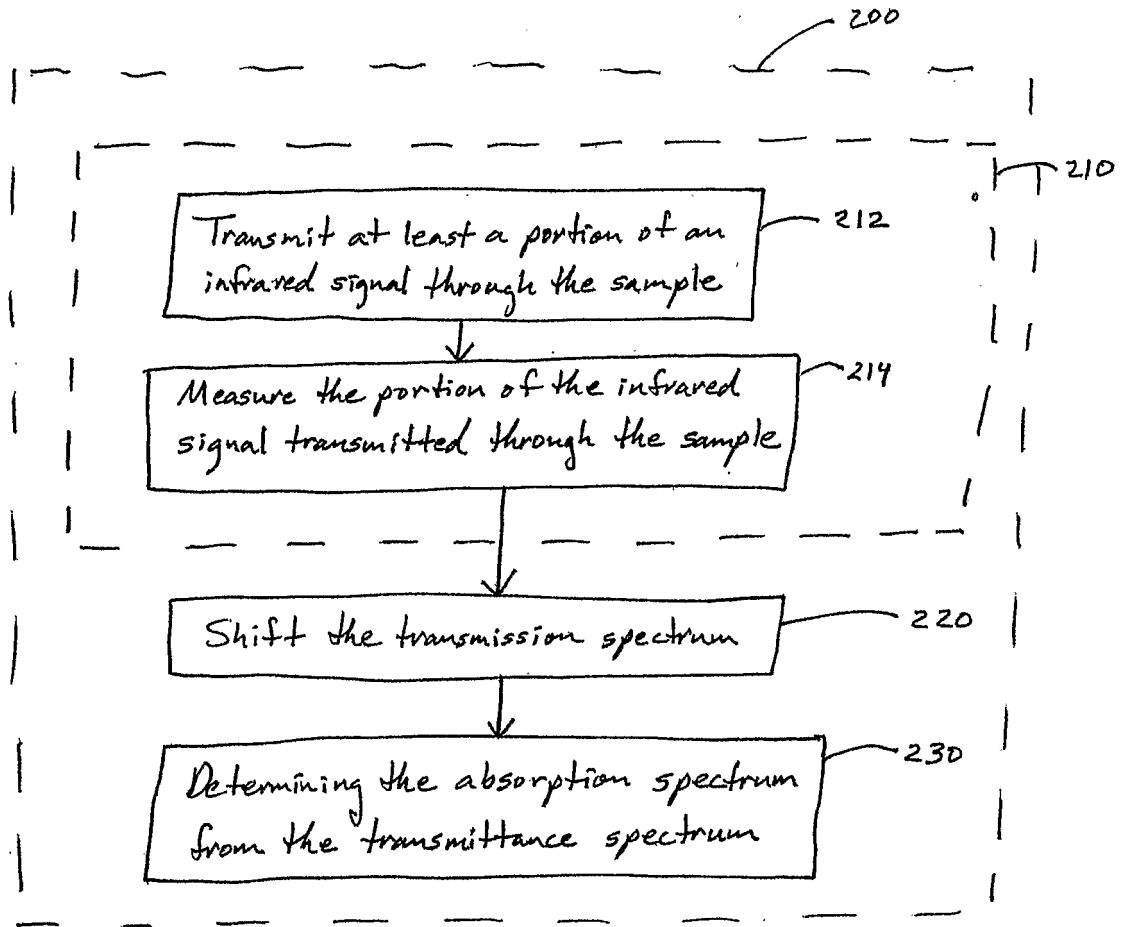 200
210
Transmit at least a portion of an
infrared signal through the sample
212
Measure the portion of the infrared
signal transmitted through the sample
214
Shift the transmission spectrum
220
Determining the absorption spectrum
from the transmittance spectrum
230